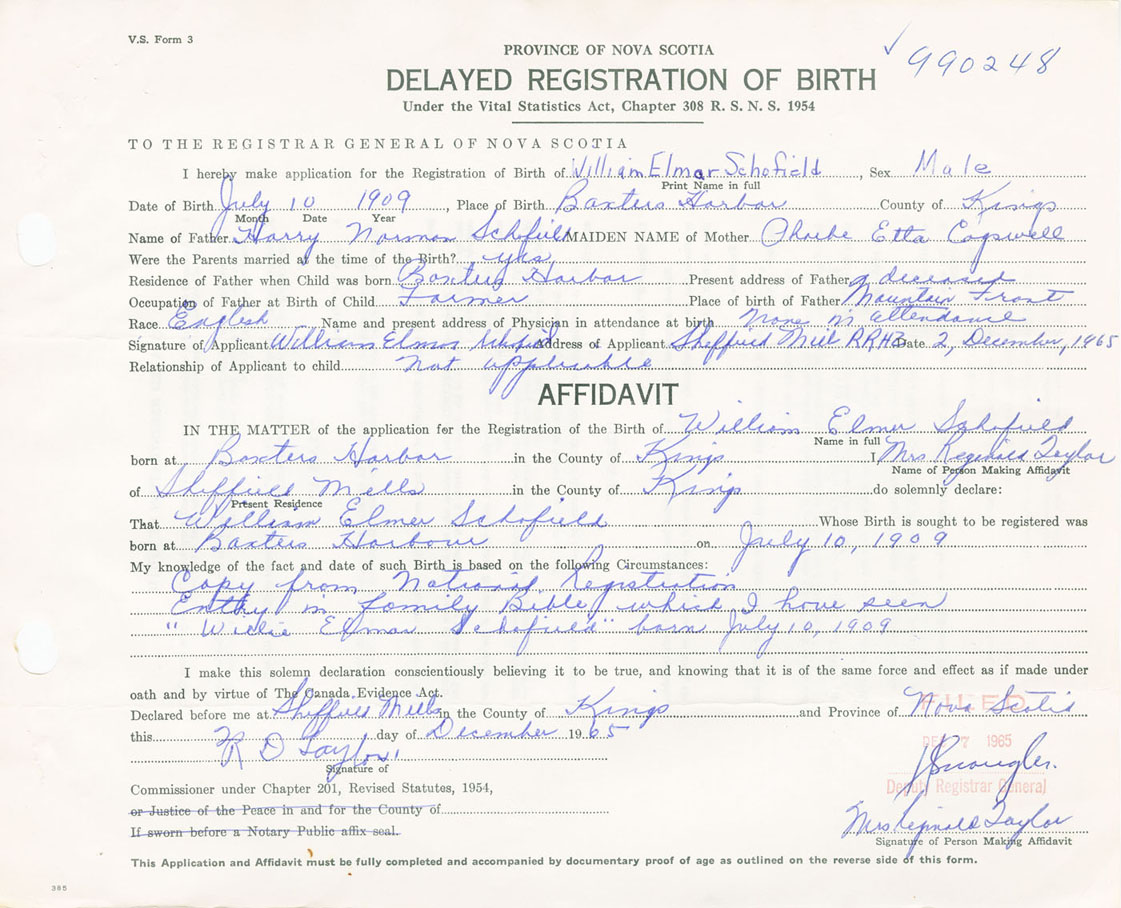 V.S. Form 3
✓ 990248
PROVINCE OF NOVA SCOTIA
DELAYED REGISTRATION OF BIRTH
Under the Vital Statistics Act, Chapter 308 R. S. N. S. 1954
TO THE REGISTRAR GENERAL OF NOVA SCOTIA
I hereby make application for the Registration of Birth of William Elmar Schofield, Sex Male
Print Name in full
Date of Birth July 10 1909, Place of Birth Baxters Harbor County of Kings
Month Date Year
Name of Father Harry Norman Schofield MAIDEN NAME of Mother Phoebe Etta Cogswell
Were the Parents married at the time of the Birth? yes
Residence of Father when Child was born Baxters Harbor Present address of Father deceased
Occupation of Father at Birth of Child Farmer Place of birth of Father Mountain Front
Race English Name and present address of Physician in attendance at birth None in attendance
Signature of Applicant William Elmor Schofield Address of Applicant Sheffield Mill RR#3 Date 2, December, 1965
Relationship of Applicant to child Not applicable
AFFIDAVIT
IN THE MATTER of the application for the Registration of the Birth of William Elmer Schofield
Name in full
born at Baxters Harbor in the County of Kings I Mrs Reginald Taylor
Name of Person Making Affidavit
of Sheffield Mills in the County of Kings do solemnly declare:
Present Residence
That William Elmer Schofield Whose Birth is sought to be registered was
born at Baxters Harbour on July 10, 1909
My knowledge of the fact and date of such Birth is based on the following Circumstances:
Copy from National Registration
Entry in family Bible which I have seen
"Willie Elmar Schofield" born July 10, 1909
I make this solemn declaration conscientiously believing it to be true, and knowing that it is of the same force and effect as if made under
oath and by virtue of The Canada Evidence Act.
Declared before me at Sheffield Mills in the County of Kings and Province of Nova Scotia
FILED
this day of December 1965
R D Taylor
DEC 7 1965
Signature of
Deputy Registrar General
Commissioner under Chapter 201, Revised Statutes, 1954,
or Justice of the Peace in and for the County of
If sworn before a Notary Public affix seal.
Mrs Reginald Taylor
Signature of Person Making Affidavit
This Application and Affidavit must be fully completed and accompanied by documentary proof of age as outlined on the reverse side of this form.
385